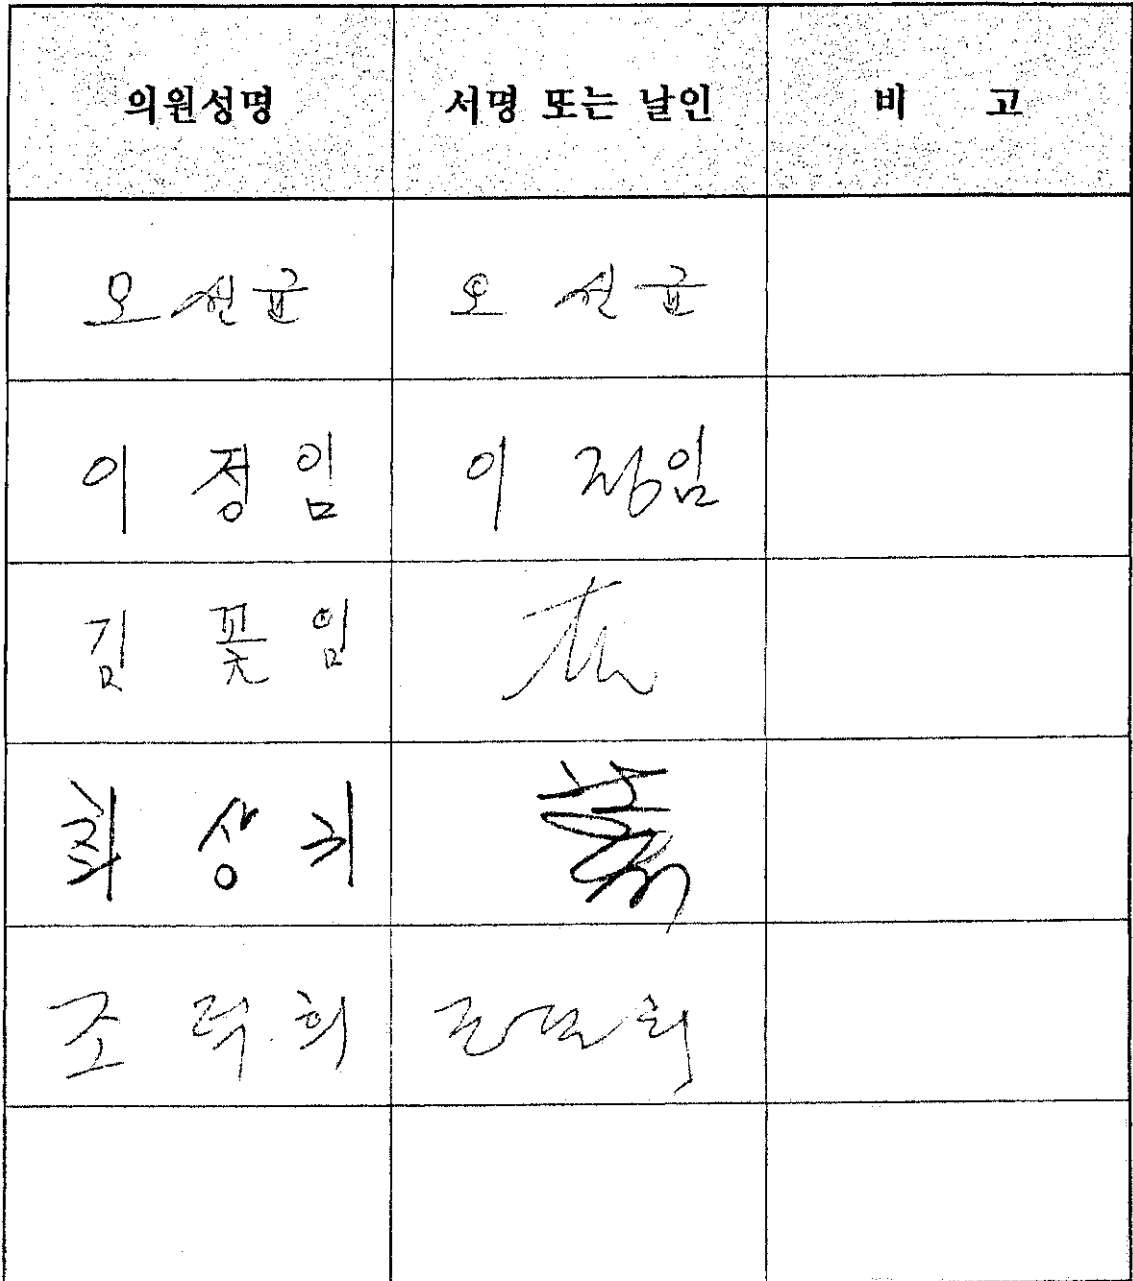 의원성명 서명 또는 날인 비 고
오선균 오 선균
이 정임 이 정임
김 꽃임
최 상귀
조 덕희